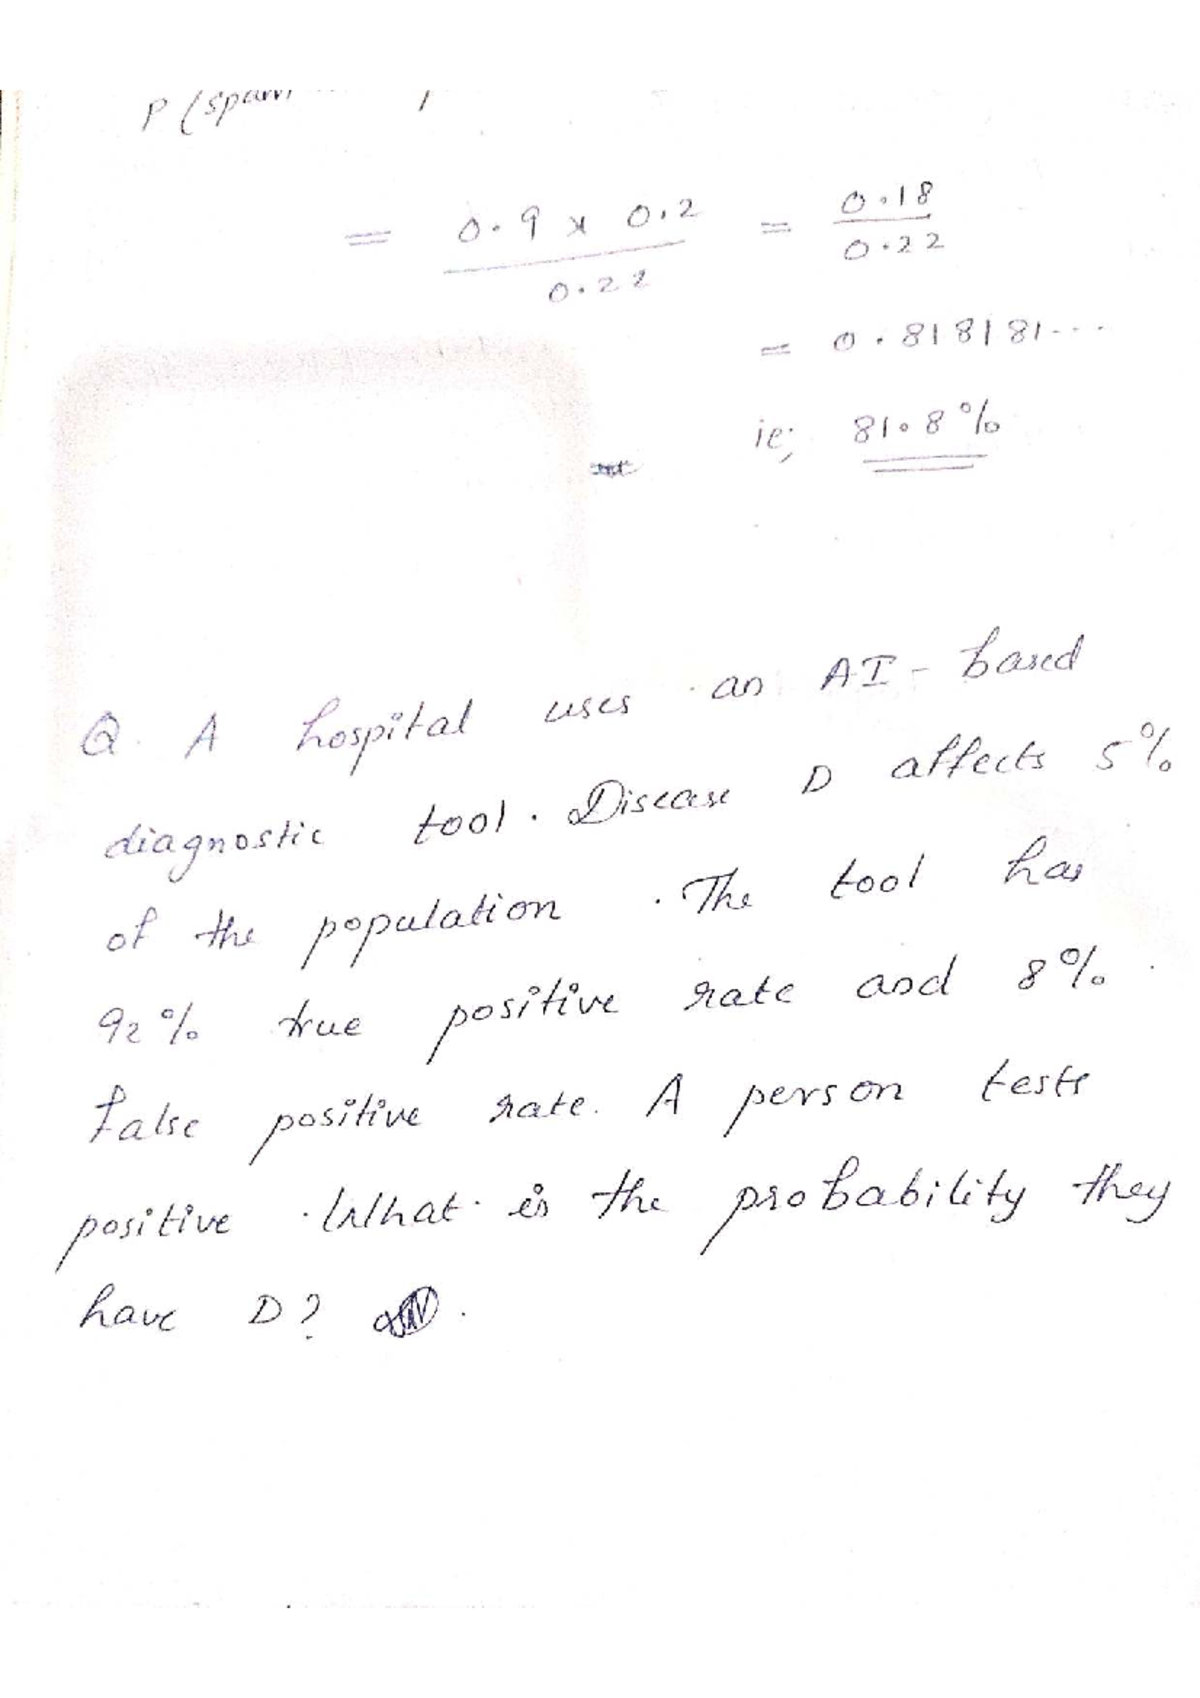 P (spam
= 0.9 x 0.2 / 0.22 = 0.18 / 0.22
= 0.818181...
ie; 81.8%
Q. A hospital uses an AI-based
diagnostic tool. Disease D affects 5%
of the population. The tool has
92% true positive rate and 8%
false positive rate. A person tests
positive. What is the probability they
have D?